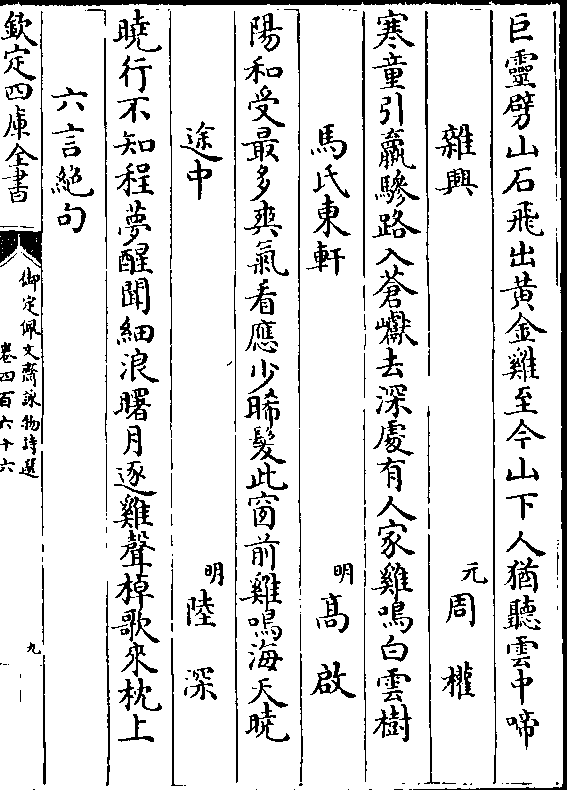 巨靈劈山石飛出黃金雞至今山下人猶聽雲中啼
雜興 元周權
寒童引羸驂路入蒼巘去深處有人家雞鳴白雲樹
馬氏東軒 明高啟
陽和受最多爽氣看應少晞髮此窗前雞鳴海天曉
途中 明陸深
曉行不知程夢醒聞細浪曙月逐雞聲棹歌來枕上
六言絕句
欽定四庫全書
御定佩文齋詠物詩選
卷四百六十六
九